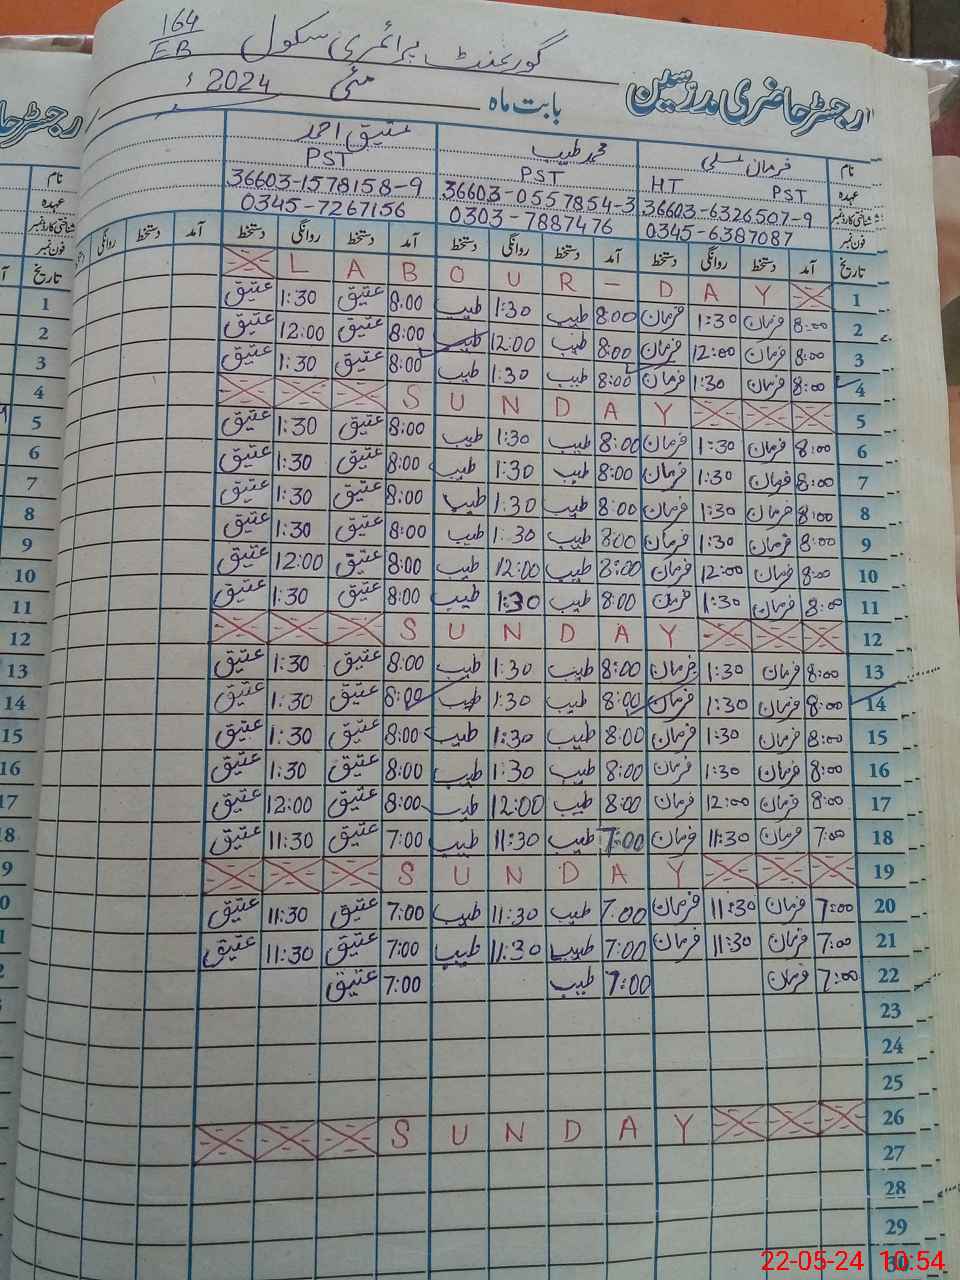 164/EB گورنمنٹ پرائمری سکول
رجسٹر حاضری مدرسین بابت ماہ مئی 2024ء
نام فرمان علی محمد طیب عتیق احمد
عہدہ PST HT PST PST
شناختی کارڈ نمبر 36603-6326507-9 36603-0557854-3 36603-1578158-9
فون نمبر 0345-6387087 0303-7887476 0345-7267156
تاریخ آمد دستخط روانگی دستخط آمد دستخط روانگی دستخط آمد دستخط روانگی دستخط آمد دستخط روانگی
1 LABOUR - DAY
2 8:00 فرمان 1:30 فرمان 8:00 طیب 1:30 طیب 8:00 عتیق 1:30 عتیق
3 8:00 فرمان 12:00 فرمان 8:00 طیب 12:00 طیب 8:00 عتیق 12:00 عتیق
4 8:00 فرمان 1:30 فرمان 8:00 طیب 1:30 طیب 8:00 عتیق 1:30 عتیق
5 SUNDAY
6 8:00 فرمان 1:30 فرمان 8:00 طیب 1:30 طیب 8:00 عتیق 1:30 عتیق
7 8:00 فرمان 1:30 فرمان 8:00 طیب 1:30 طیب 8:00 عتیق 1:30 عتیق
8 8:00 فرمان 1:30 فرمان 8:00 طیب 1:30 طیب 8:00 عتیق 1:30 عتیق
9 8:00 فرمان 1:30 فرمان 8:00 طیب 1:30 طیب 8:00 عتیق 1:30 عتیق
10 8:00 فرمان 12:00 فرمان 8:00 طیب 12:00 طیب 8:00 عتیق 12:00 عتیق
11 8:00 فرمان 1:30 فرمان 8:00 طیب 1:30 طیب 8:00 عتیق 1:30 عتیق
12 SUNDAY
13 8:00 فرمان 1:30 فرمان 8:00 طیب 1:30 طیب 8:00 عتیق 1:30 عتیق
14 8:00 فرمان 1:30 فرمان 8:00 طیب 1:30 طیب 8:00 عتیق 1:30 عتیق
15 8:00 فرمان 1:30 فرمان 8:00 طیب 1:30 طیب 8:00 عتیق 1:30 عتیق
16 8:00 فرمان 1:30 فرمان 8:00 طیب 1:30 طیب 8:00 عتیق 1:30 عتیق
17 8:00 فرمان 12:00 فرمان 8:00 طیب 12:00 طیب 8:00 عتیق 12:00 عتیق
18 7:00 فرمان 11:30 فرمان 7:00 طیب 11:30 طیب 7:00 عتیق 11:30 عتیق
19 SUNDAY
20 7:00 فرمان 11:30 فرمان 7:00 طیب 11:30 طیب 7:00 عتیق 11:30 عتیق
21 7:00 فرمان 11:30 فرمان 7:00 طیب 11:30 طیب 7:00 عتیق 11:30 عتیق
22 7:00 فرمان 7:00 طیب 7:00 عتیق
23
24
25
26 SUNDAY
27
28
29
30
22-05-24 10:54